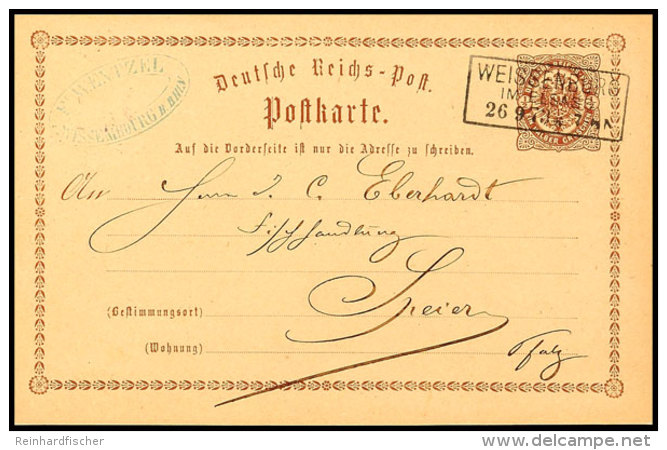 WENTZEL
WEISSENBURG
26 9
Deutsche Reichs-Post.
Postkarte.
Auf die Vorderseite ist nur die Adresse zu schreiben.
An Herrn J. C. Eberhardt
Fischhandlung
(Bestimmungsort) Speier
(Wohnung) Pfalz
Reinhardfischer
delcampe.net